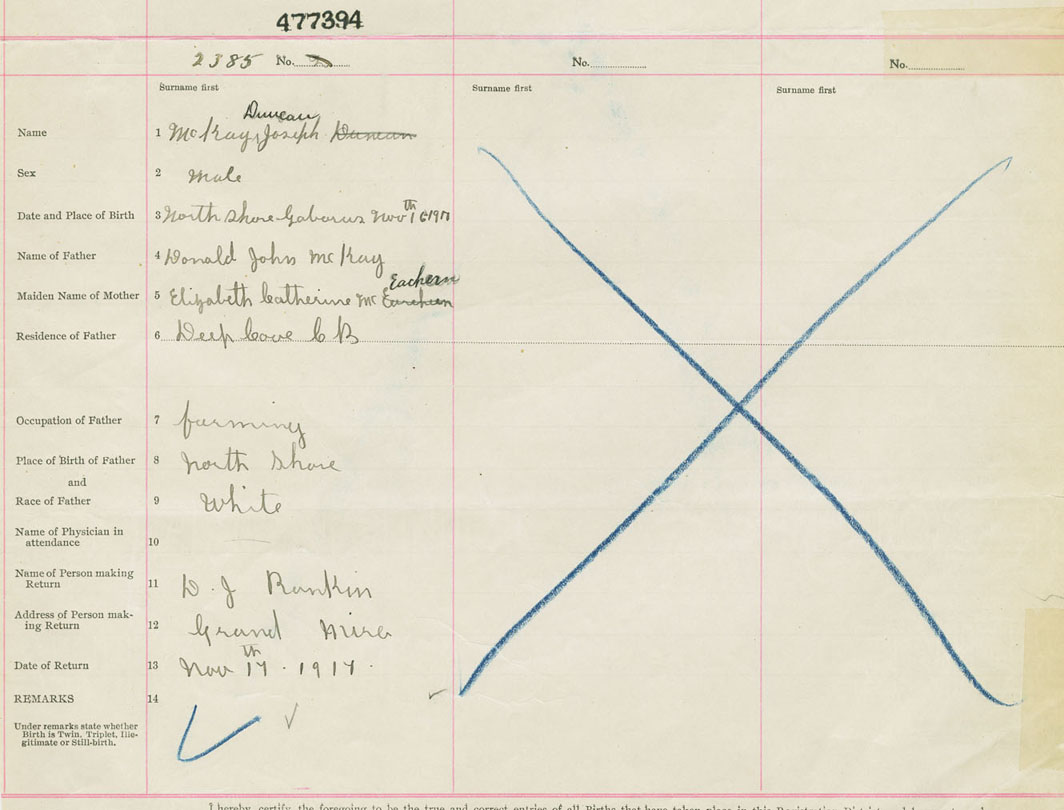 477394
2385 No. No. No.
Surname first Surname first Surname first
Duncan
Name 1 McKay, Joseph Duncan
Sex 2 Male
Date and Place of Birth 3 North Shore Gabarus Nov th
Name of Father 4 Donald John McKay
Eachern
Maiden Name of Mother 5 Elizabeth Catherine Mc
Residence of Father 6 Deep Cove C B
Occupation of Father 7 farming
Place of Birth of Father 8 North Shore
and
Race of Father 9 White
Name of Physician in
attendance 10
Name of Person making
Return 11 D. J Rankin
Address of Person mak-
ing Return 12 Grand Mira
Date of Return 13 Nov 17th . 1917 .
REMARKS 14
Under remarks state whether
Birth is Twin, Triplet, Ille-
gitimate or Still-birth.
I hereby certify the foregoing to be the true and correct entries of all Births that have taken place in this Registration District